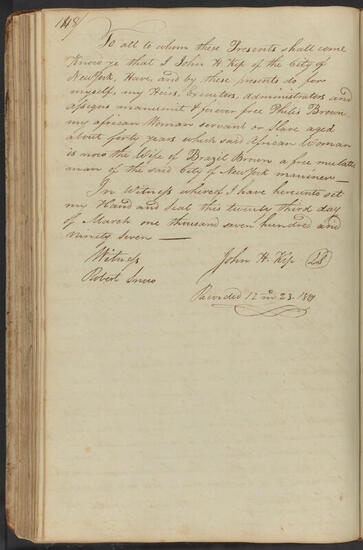 148/
To all to whom these Presents shall come
Know ye that I John H Kip of the City of
NewYork, Have, and by these, presents do for
myself, my Heirs, Executors, administrators and
assigns manumit & forever free Philis Brown
my african Woman servant or Slave aged
about forty years which said African Woman
is now the Wife of Brazel Brown a free mulatto
man of the said City of NewYork mariner —
In Witness whereof I have hereunto set
my Hand and Seal this twenty third day
of March one thousand seven hundred and
ninety seven —
Witness John H. Kip LS
Robert Snow
Recorded 12 mo 23. 1809